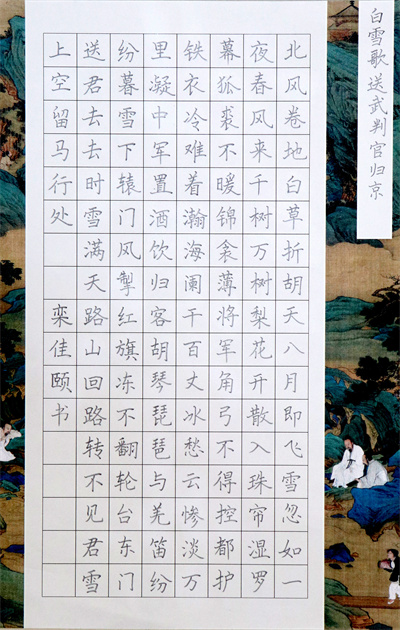 白雪歌送武判官归京
北风卷地白草折胡天八月即飞雪忽如一
夜春风来千树万树梨花开散入珠帘湿罗
幕狐裘不暖锦衾薄将军角弓不得控都护
铁衣冷难着瀚海阑干百丈冰愁云惨淡万
里凝中军置酒饮归客胡琴琵琶与羌笛纷
纷暮雪下辕门风掣红旗冻不翻轮台东门
送君去去时雪满天路山回路转不见君雪
上空留马行处 栾佳颐书